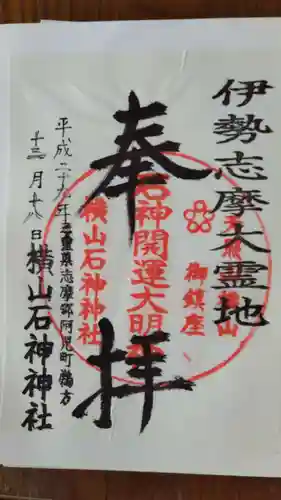 伊勢志摩大霊地
御鎮座
奉拝
石神開運大明神
横山石神神社
平成二十九年
三重県志摩郡阿児町鵜方
十二月十八日
横山石神神社